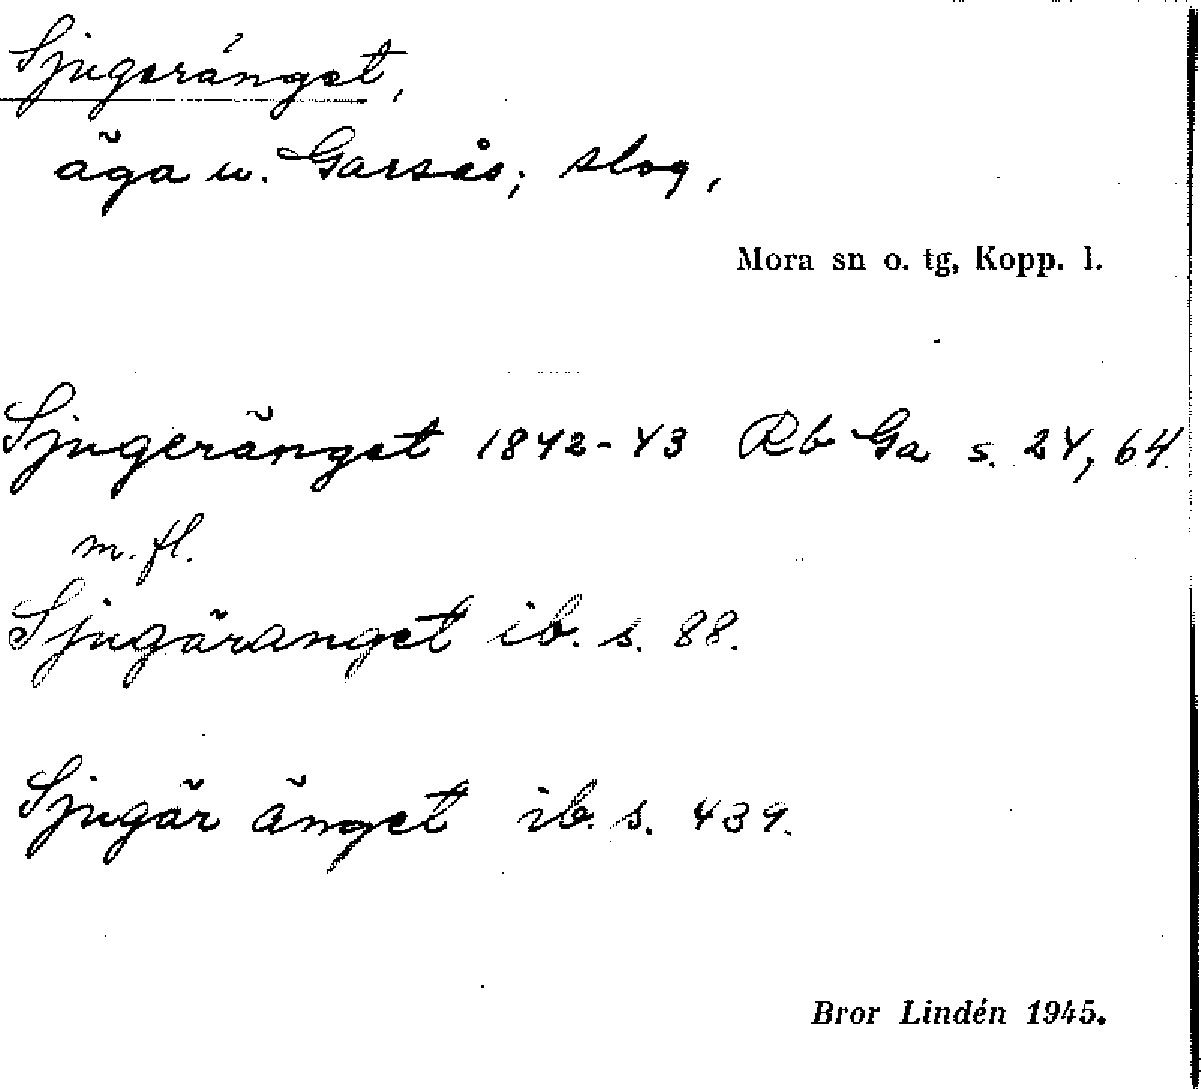 Sjugeränget,
äga w. Garsås; slog,
Mora sn o. tg, Kopp. l.
Sjugeränget 1842-43 Rb Ga s. 24, 64
m. fl.
Sjugäranget ib. s. 88.
Sjugär änget ib. s. 439.
Bror Lindén 1945.